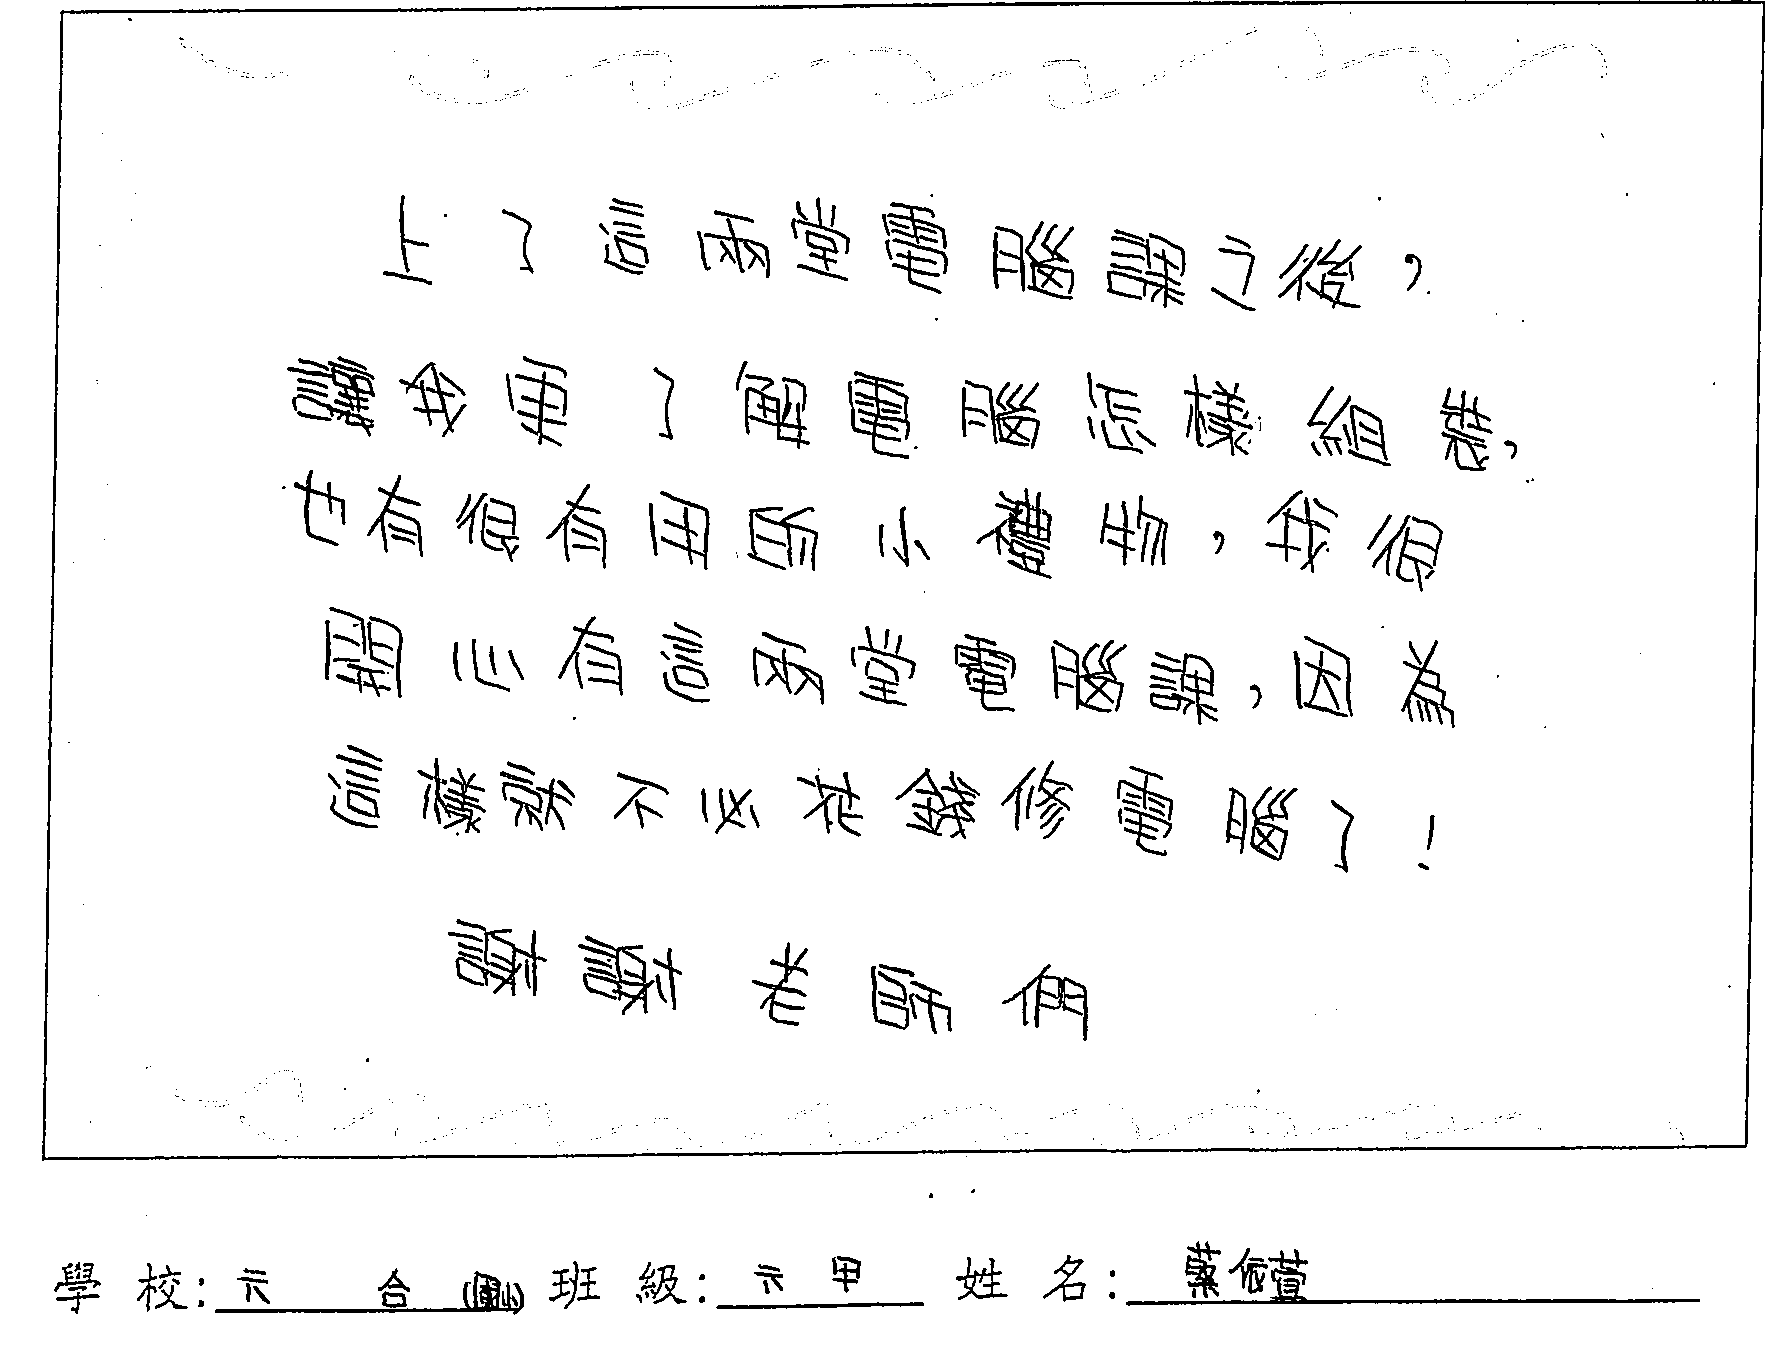 上了這兩堂電腦課之後，
讓我更了解電腦怎樣組裝，
也有很有用的小禮物，我很
開心有這兩堂電腦課，因為
這樣就不必花錢修電腦了！
謝謝老師們
學校：六合(國小) 班級：六甲 姓名：蔡依萱